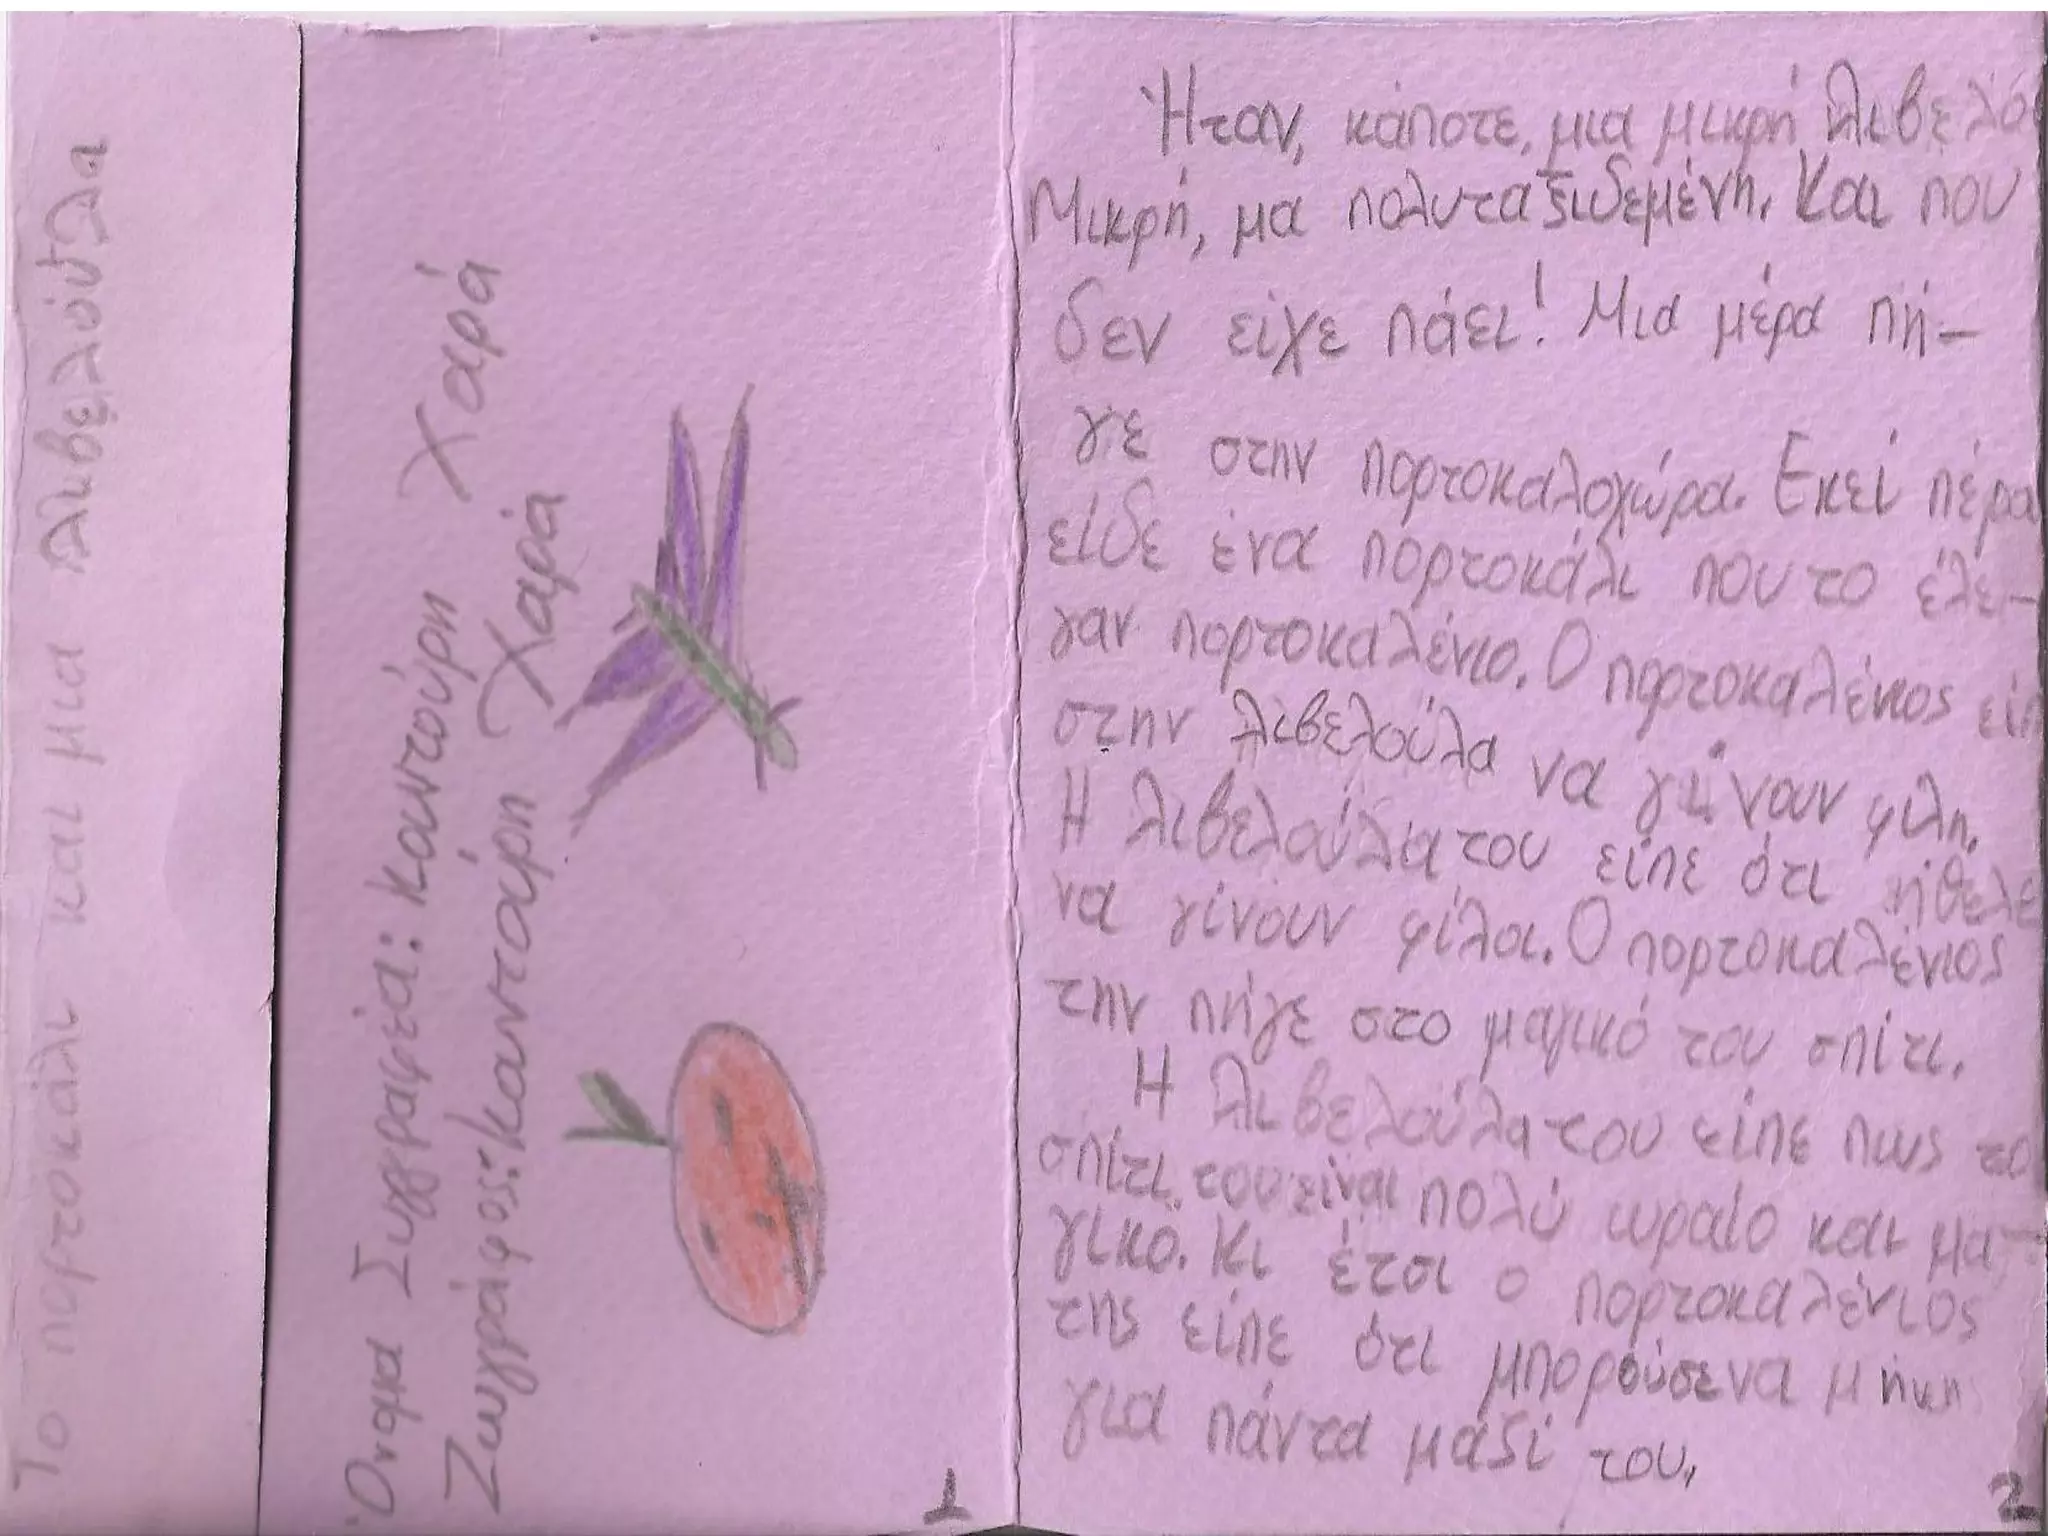 Το πορτοκάλι και μια λιβελούλα
Όνομα Συγγραφέα: Καντούρη Χαρά
Ζωγράφος: Καντούρη Χαρά
1
Ήταν, κάποτε, μια μικρή λιβελο
Μικρή, μα πολυταξιδεμένη. Και που
δεν είχε πάει! Μια μέρα πή-
γε στην πορτοκαλοχώρα. Εκεί πέρα
είδε ένα πορτοκάλι που το έλε-
γαν πορτοκαλένιο. Ο πορτοκαλένιος είπ
στην λιβελούλα να γίνουν φίλη.
Η λιβελούλα του είπε ότι ήθελε
να γίνουν φίλοι. Ο πορτοκαλένιος
την πήγε στο μαγικό του σπίτι.
Η λιβελούλα του είπε πως το
σπίτι του είναι πολύ ωραίο και μα-
γικό. Κι έτσι ο πορτοκαλένιος
της είπε ότι μπορούσε να μήκη
για πάντα μαζί του.
2